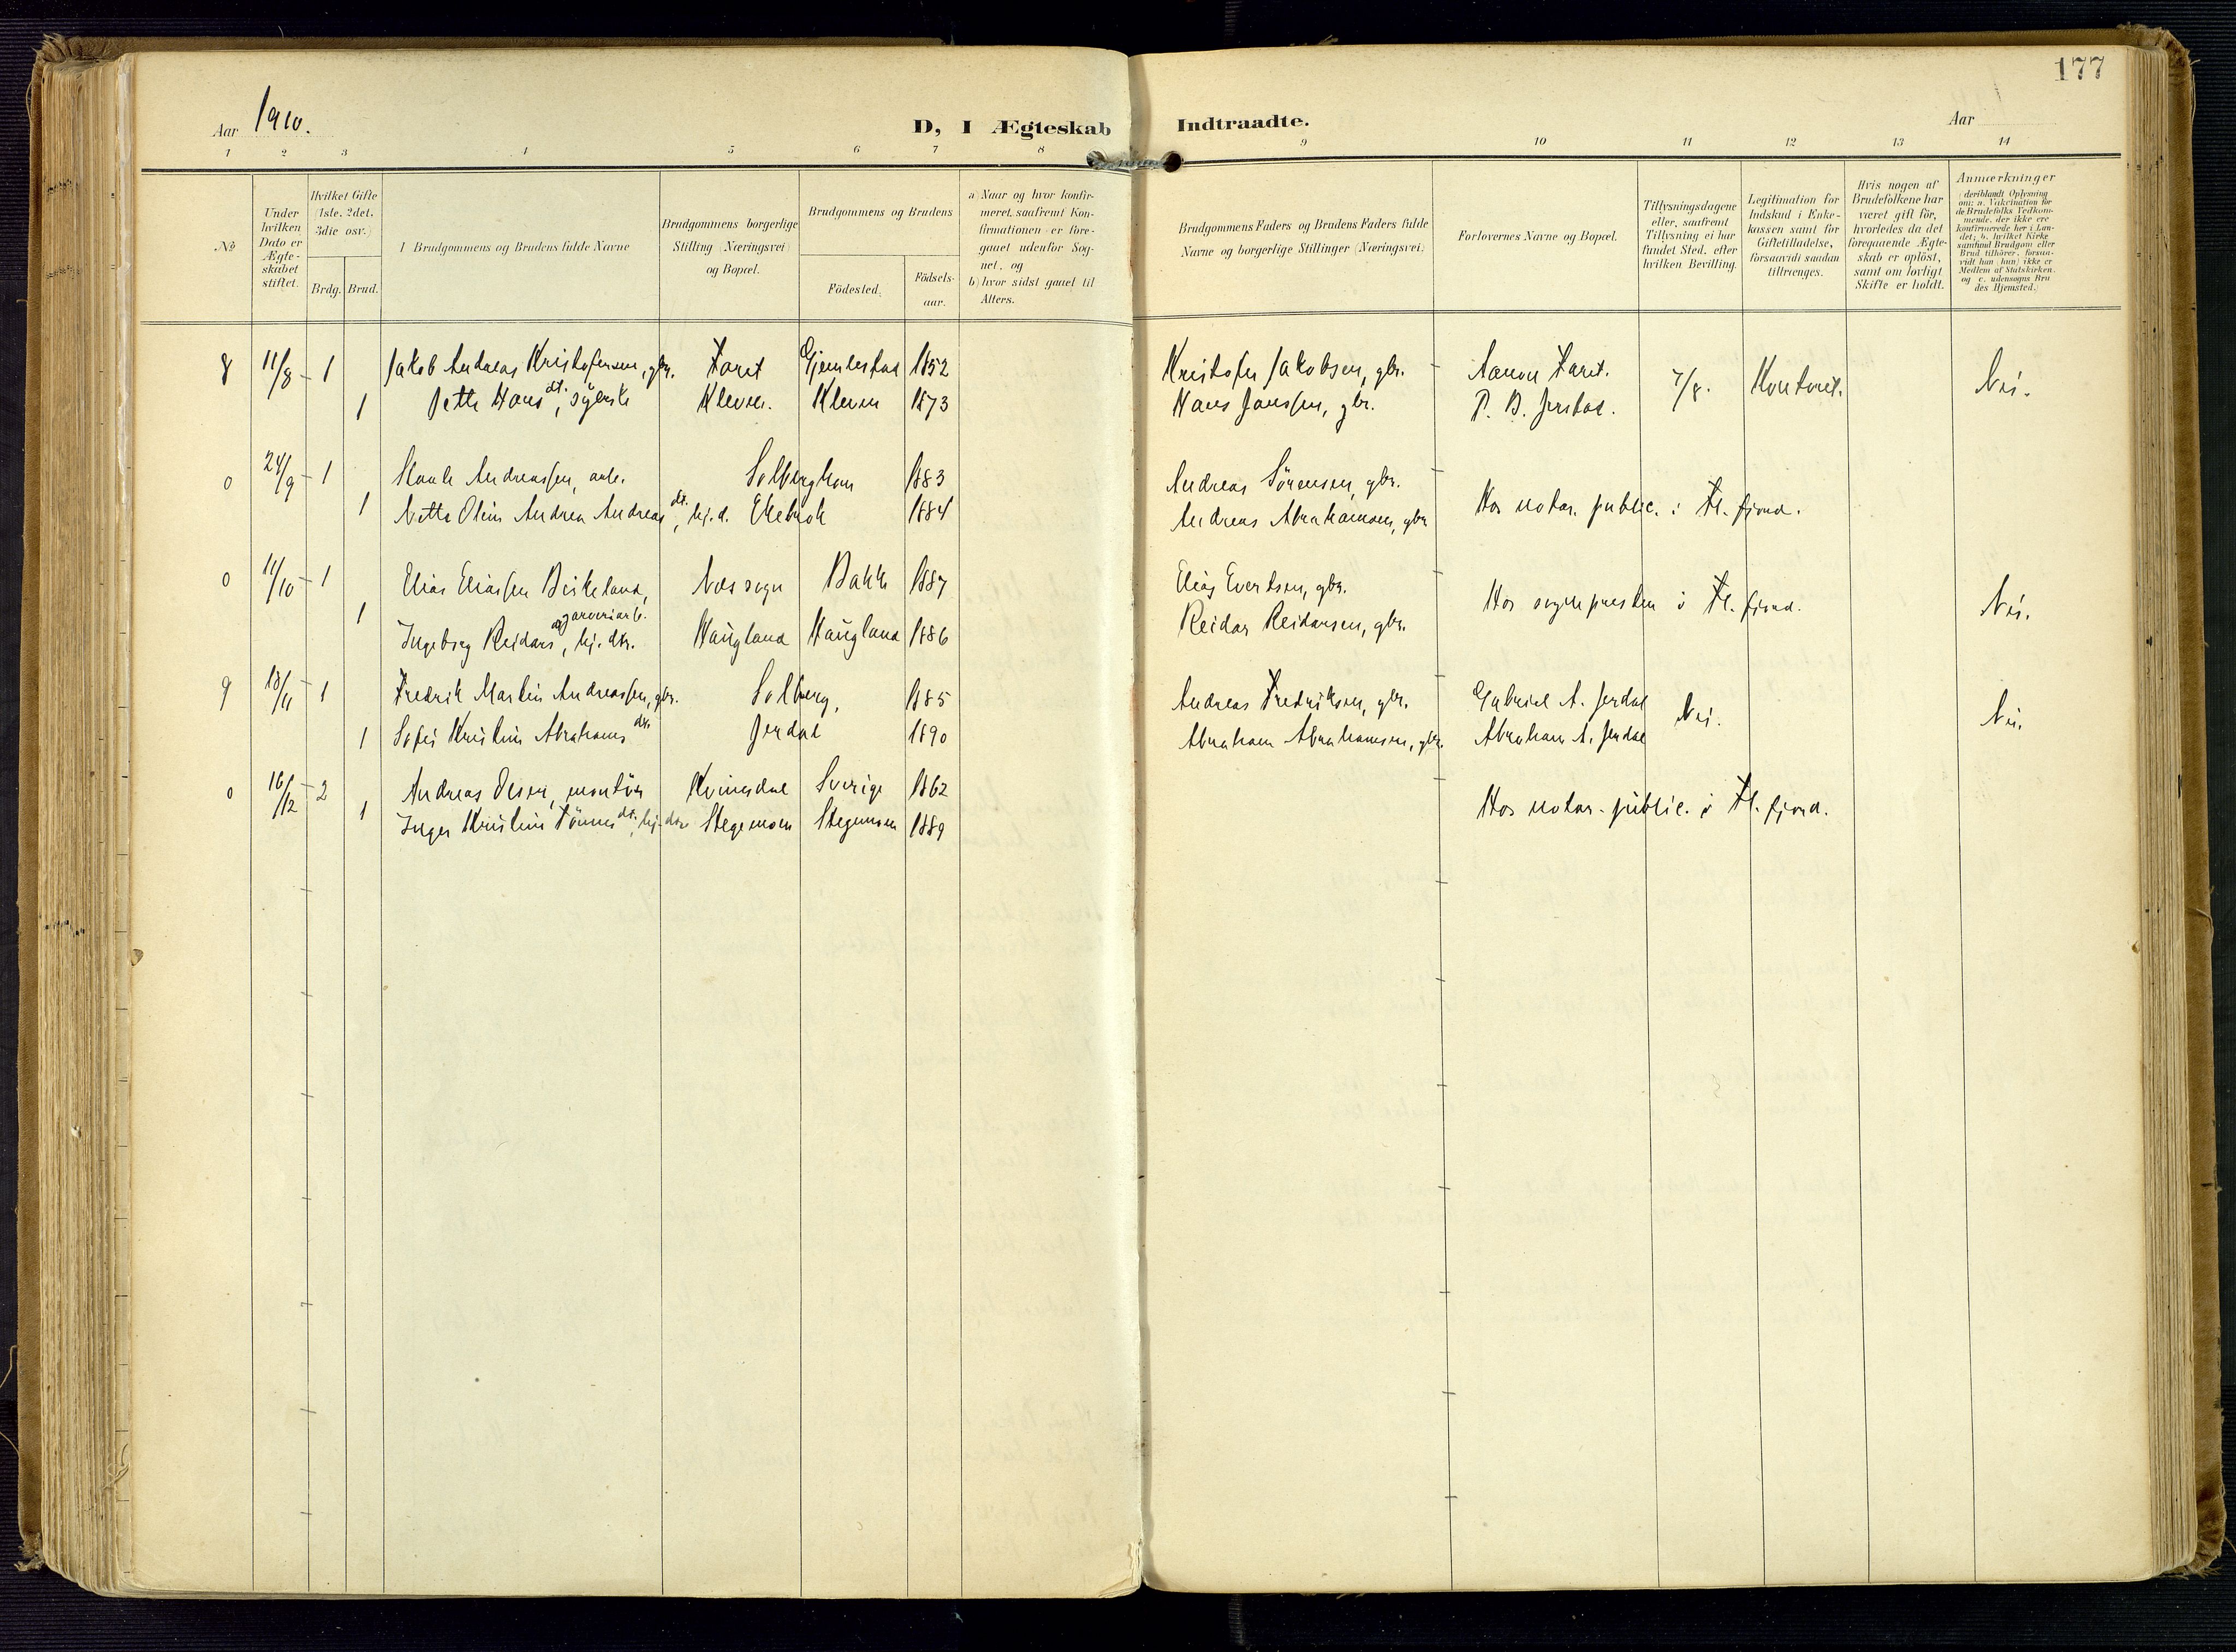 177
Aar 1910.
D, I Ægteskab Indtraadte.
Aar
1 2 3 4 5 6 7 8 9 10 11 12 13 14
No
Under hvilken Dato er Ægteskabet stiftet.
Hvilket Gifte (1ste. 2det. 3die osv.)
Brdg. Brud.
1 Brudgommens og Brudens fulde Navne
Brudgommens borgerlige Stilling (Næringsvei) og Bopæl.
Brudgommens og Brudens
Födested.
Födsels-aar.
a) Naar og hvor konfir-
meret, saafremt Kon-
firmationen er fore-
gaaet udenfor Sog-
net, og
b) hvor sidst gaaet til
Alters.
Brudgommens Faders og Brudens Faders fulde
Navne og borgerlige Stillinger (Næringsvei).
Forlovernes Navne og Bopæl.
Tillysningsdagene
eller, saafremt
Tillysning ei har
fundet Sted, efter
hvilken Bevilling.
Legitimation for
Indskud i Enke-
kassen samt for
Giftetilladelse,
forsaavidt saadan
tiltrænges.
Hvis nogen af
Brudefolkene har
været gift för,
hvorledes da det
foregaaende Ægte-
skab er oplöst,
samt om lovligt
Skifte er holdt.
Anmærkninger
(deriblandt Oplysning
om: a. Vakcination for
de Brudefolks Vedkom-
mende, der ikke ere
konfirmerede her i Lan-
det; b. hvilket Kirke-
samfund Brudgom eller
Brud tilhörer, forsaa-
vidt han (hun) ikke er
Medlem af Statskirken,
og c. udensogns Bru-
des Hjemsted.)
8 11/8 1 Jakob Andreas Kristofersen, gbr. Faret Gjemlestad 1852 Kristofer Jakobsen, gbr. Aanon Faret. 7/8. Kontrol. Nei.
1 Jette Hans dt., syerske Kleven. Kleven 1873 Hans Janssen, gbr. P. B. Jerstad.
0 24/9 1 Andreassen, arb. Solberghom 1883 Andreas Sörensen, gbr.
1 Nette Oline Andrea Andreas dt., hj.d. Ekebrok 1884 Andreas Abrahamsen, gbr. Hos notar. public. i Fl. fjord.
0 11/10 1 Elias Eliassen Birkeland, Nes sogn Bakke 1887 Elias Evertsen, gbr. Hos sognepresten i Fl. fjord. Nei.
garveriarb.
1 Ingeborg Reidars dt, hj. dtr. Haugland Haugland 1886 Reidar Reidarsen, gbr.
9 13/11 1 Fredrik Martin Andreassen, gbr. Solberg, 1885 Andreas Fredriksen, gbr. Gabriel A. Jerdal Nei. Nei.
1 Sofie Kristine Abrahams dtr Jerdal 1890 Abraham Abrahamsen, gbr. Abraham A. Jerdal
0 16/12 2 Andreas Olsen, montör Kvinesdal Sverige 1862 Hos notar. public. i Fl. fjord.
1 Inger Kristine Tönnes dt., hj. dtr Stegemoen Stegemoen 1889